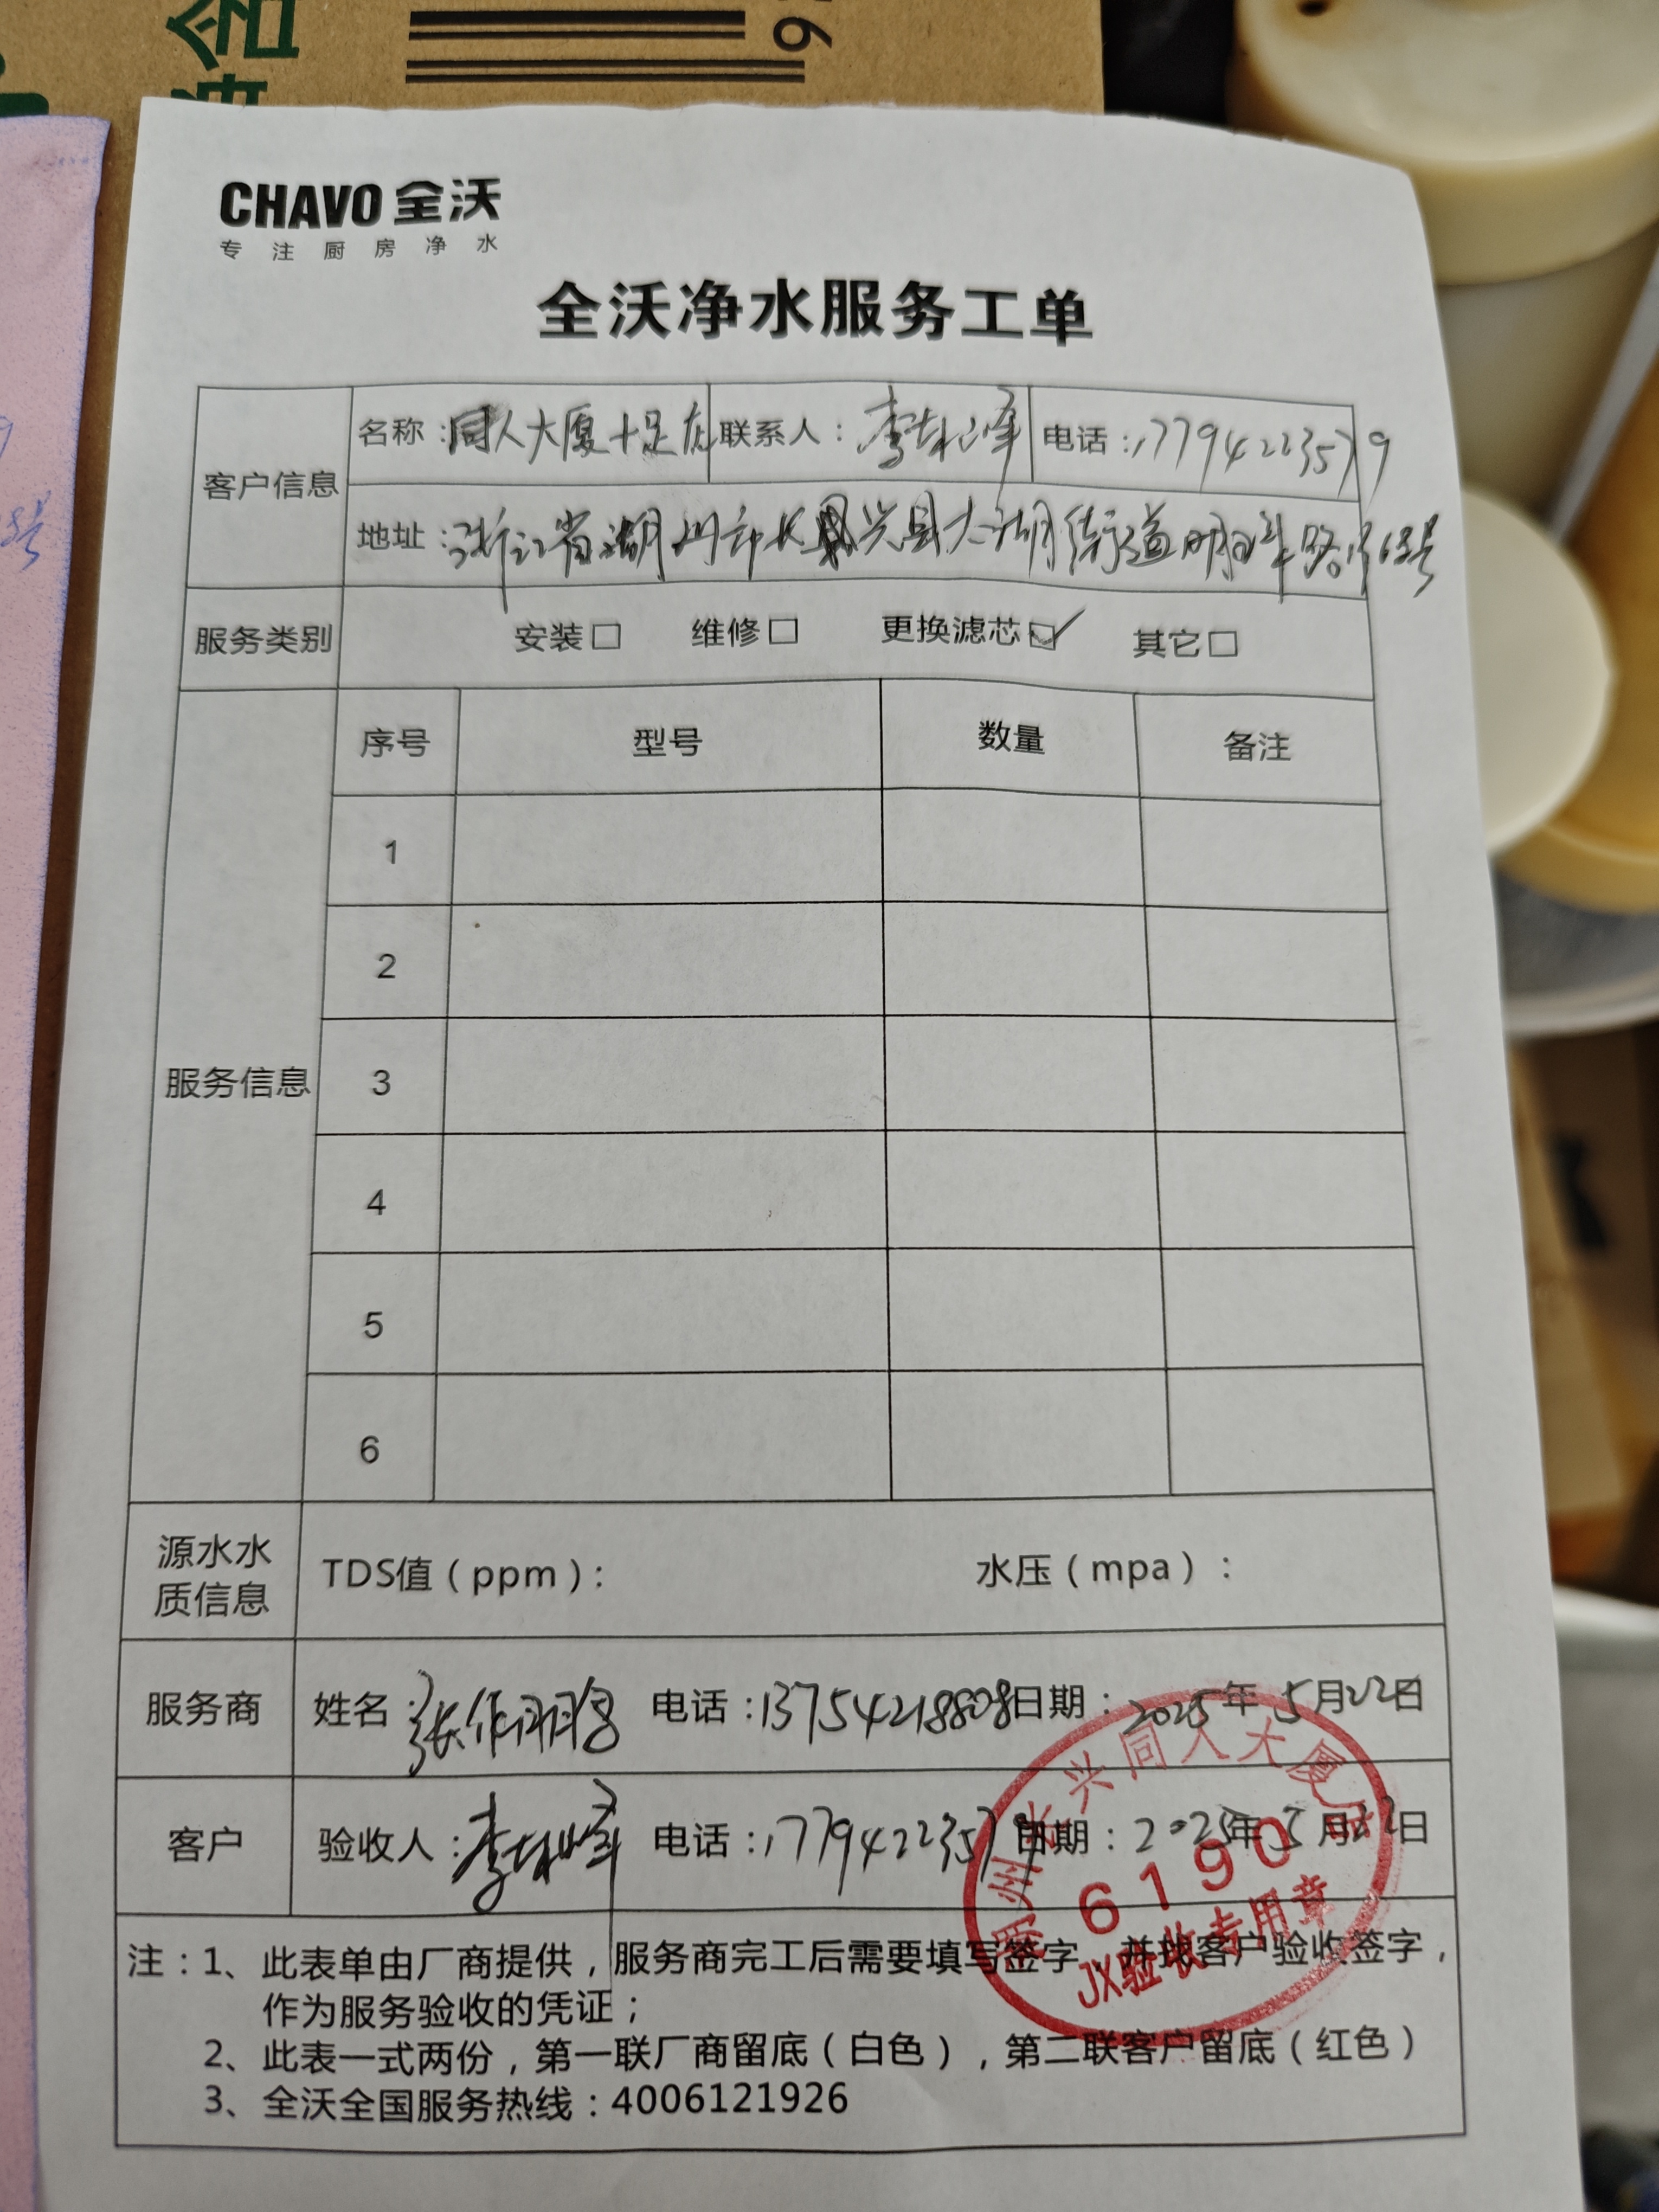 CHAVO 全沃
专注厨房净水
全沃净水服务工单
客户信息
名称：同人大厦十足店 联系人：李 峰 电话：17794223579
地址：浙江省湖州市长兴县太湖街道明珠路1768号
服务类别 安装□ 维修□ 更换滤芯☑ 其它□
服务信息
序号 型号 数量 备注
1
2
3
4
5
6
源水水质信息 TDS值（ppm）： 水压（mpa）：
服务商 姓名：张 电话：13754218808 日期：2025年5月22日
客户 验收人：李 峰 电话：17794223579 日期：2025年5月22日
湖州长兴同人大厦店
6190
JX验收专用章
注：1、此表单由厂商提供，服务商完工后需要填写签字，并找客户验收签字，
作为服务验收的凭证；
2、此表一式两份，第一联厂商留底（白色），第二联客户留底（红色）
3、全沃全国服务热线：4006121926